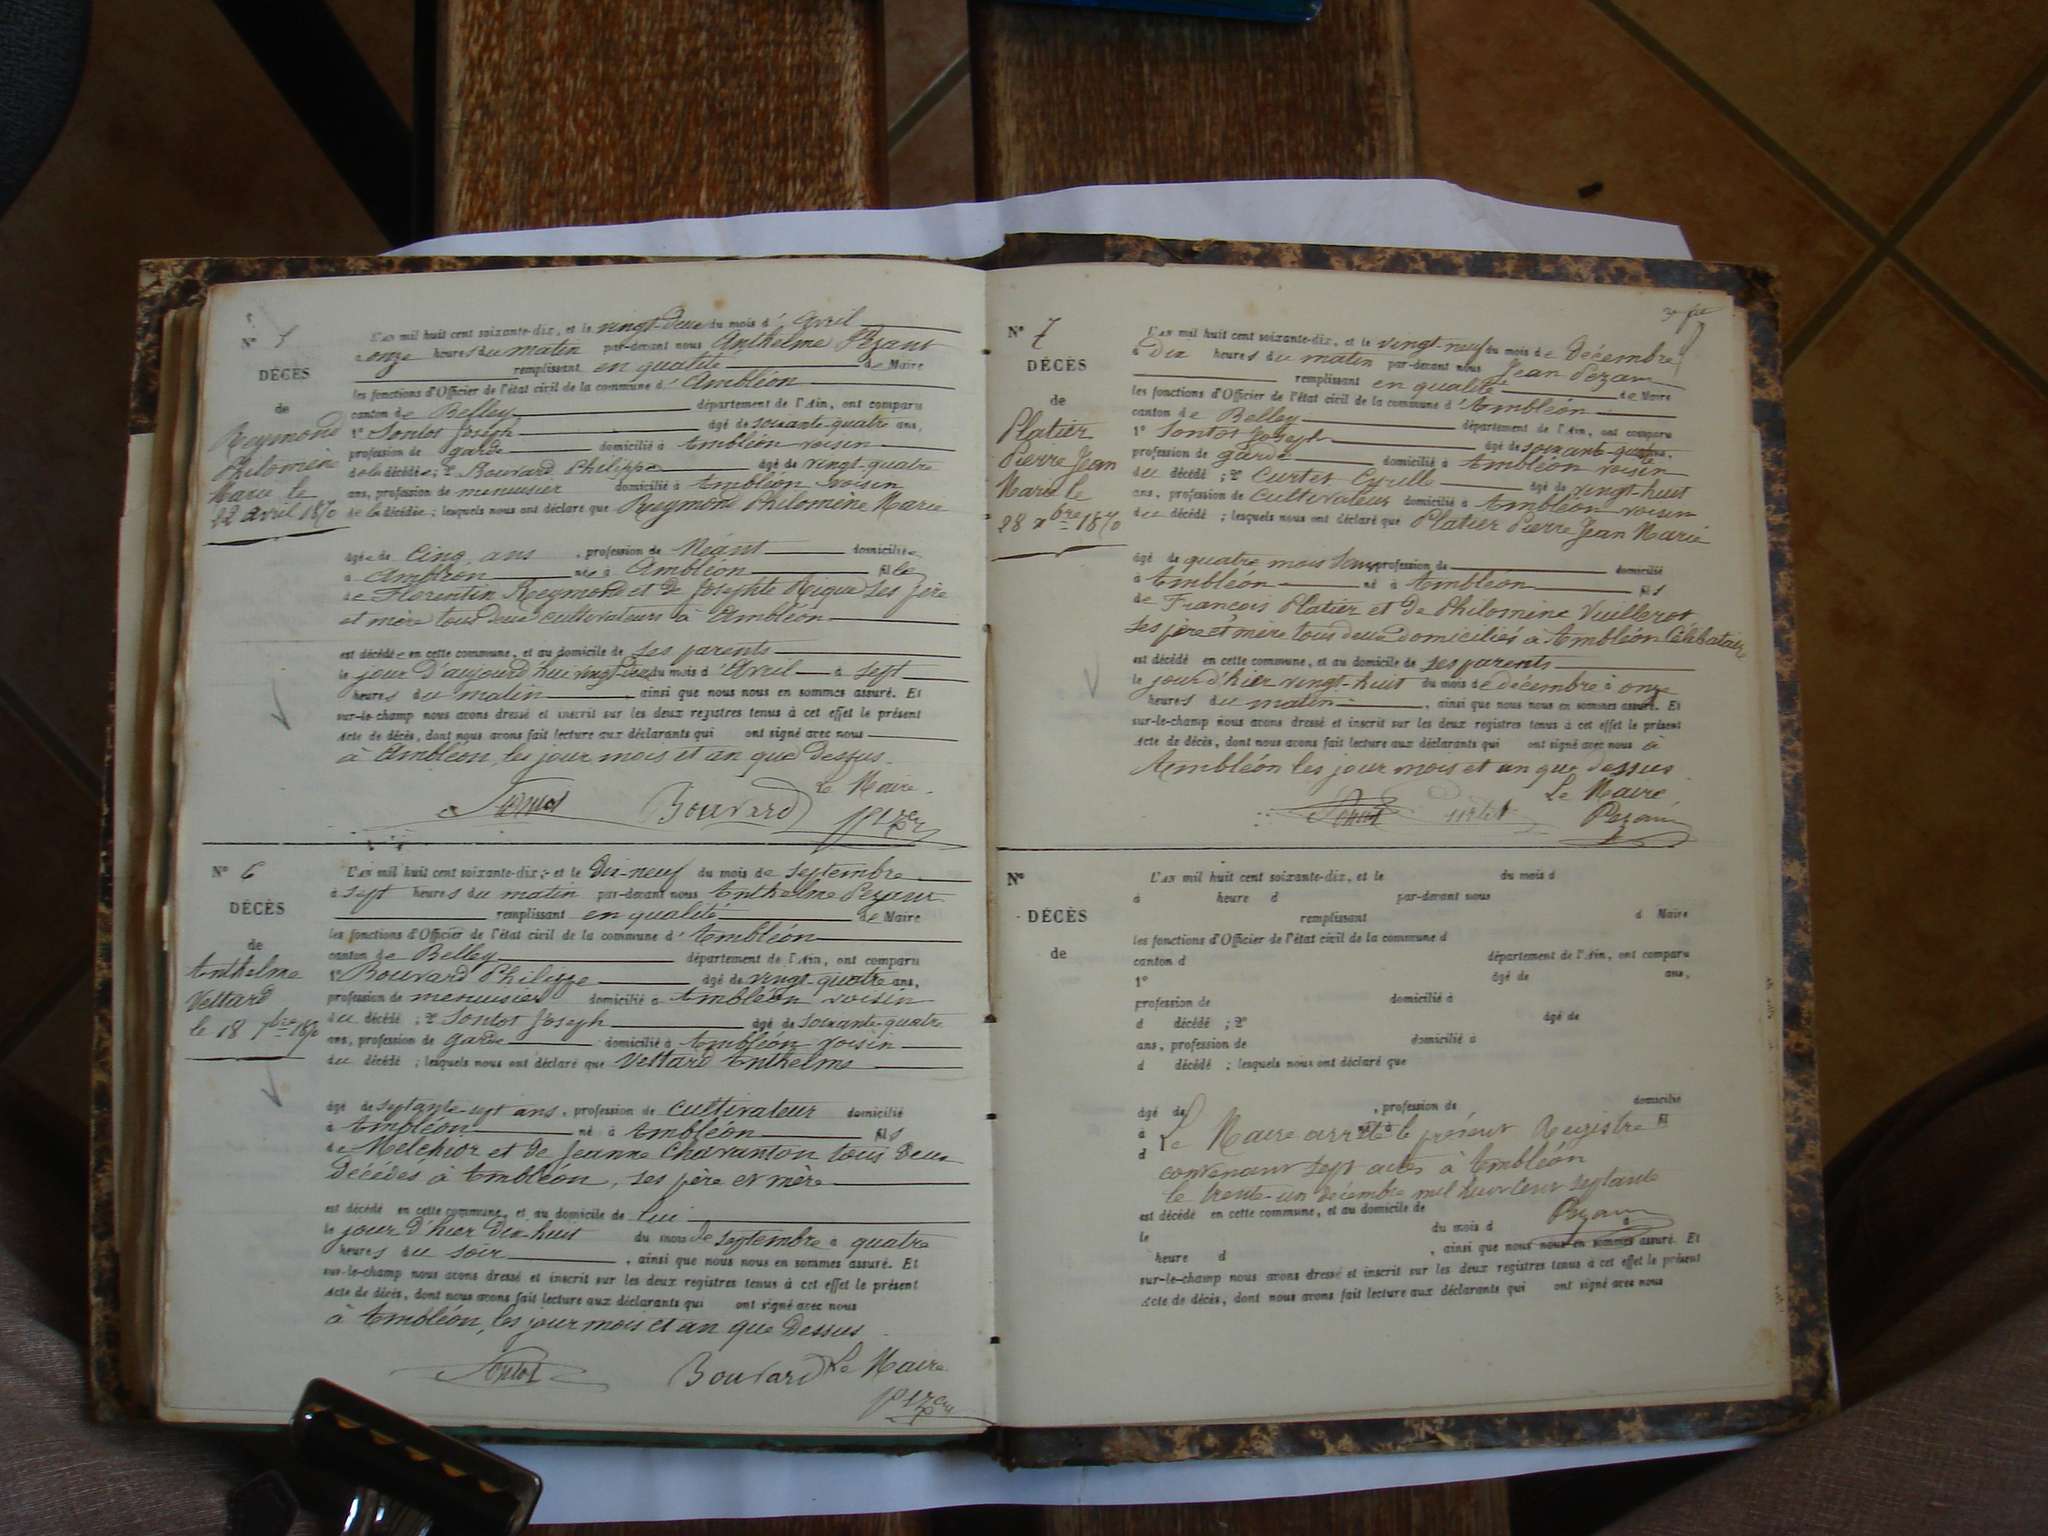 N° 5
DÉCÈS
de
Reymond
Philomène
Marie le
22 avril 1870
L'AN mil huit cent soixante-dix, et le vingt-deux du mois d'Avril
à onze heures du matin par-devant nous Anthelme Pezant
remplissant en qualité de Maire
les fonctions d'Officier de l'état civil de la commune d'Ambléon
canton de Belley département de l'Ain, ont comparu
1° Sontos Joseph âgé de soixante-quatre ans,
profession de garde domicilié à Ambléon voisin
de la décédée ; 2° Bouvard Philippe âgé de vingt-quatre
ans, profession de menuisier domicilié à Ambléon voisin
de la décédée ; lesquels nous ont déclaré que Reymond Philomène Marie
âgée de Cinq ans, profession de Néant domiciliée
à Ambléon née à Ambléon fille
de Florentin Reymond et de Josephte ses père
et mère tous deux cultivateurs à Ambléon
est décédée en cette commune, et au domicile de ses parents
le jour d'aujourd'hui vingt-deux du mois d'Avril à sept
heures du matin, ainsi que nous nous en sommes assuré. Et
sur-le-champ nous avons dressé et inscrit sur les deux registres tenus à cet effet le présent
acte de décès, dont nous avons fait lecture aux déclarants qui ont signé avec nous
à Ambléon, les jour mois et an que dessus.
Le Maire
Bouvard
N° 6
DÉCÈS
de
Anthelme
Vettard
le 18 7bre 1870
L'AN mil huit cent soixante-dix, et le Dix-neuf du mois de septembre
à sept heures du matin par-devant nous Anthelme Pezant
remplissant en qualité de Maire
les fonctions d'Officier de l'état civil de la commune d'Ambléon
canton de Belley département de l'Ain, ont comparu
1° Bouvard Philippe âgé de vingt-quatre ans,
profession de menuisier domicilié à Ambléon voisin
du décédé ; 2° Sontos Joseph âgé de soixante-quatre
ans, profession de garde domicilié à Ambléon voisin
du décédé ; lesquels nous ont déclaré que Vettard Anthelme
âgé de septante-sept ans, profession de cultivateur domicilié
à Ambléon né à Ambléon fils
de Melchior et de Jeanne Chavanton tous deux
décédés à Ambléon, ses père et mère
est décédé en cette commune, et au domicile de lui
le jour d'hier Dix-huit du mois de septembre à quatre
heures du soir, ainsi que nous nous en sommes assuré. Et
sur-le-champ nous avons dressé et inscrit sur les deux registres tenus à cet effet le présent
acte de décès, dont nous avons fait lecture aux déclarants qui ont signé avec nous
à Ambléon, les jour mois et an que dessus
Bouvard Le Maire
N° 7
DÉCÈS
de
Platier
Pierre Jean
Marie le
28 xbre 1870
L'AN mil huit cent soixante-dix, et le vingt neuf du mois de Décembre
à Dix heures du matin par-devant nous Jean Pezant
remplissant en qualité de Maire
les fonctions d'Officier de l'état civil de la commune d'Ambléon
canton de Belley département de l'Ain, ont comparu
1° Sontos Joseph âgé de soixante-quatre ans,
profession de garde domicilié à Ambléon voisin
du décédé ; 2° Curtet Cyrille âgé de vingt-huit
ans, profession de cultivateur domicilié à Ambléon voisin
du décédé ; lesquels nous ont déclaré que Platier Pierre Jean Marie
âgé de quatre mois profession de domicilié
à Ambléon né à Ambléon fils
de François Platier et de Philomine Vuillerot
ses père et mère tous deux domiciliés à Ambléon Célibataire
est décédé en cette commune, et au domicile de ses parents
le jour d'hier vingt-huit du mois de décembre à onze
heures du matin, ainsi que nous nous en sommes assuré. Et
sur-le-champ nous avons dressé et inscrit sur les deux registres tenus à cet effet le présent
acte de décès, dont nous avons fait lecture aux déclarants qui ont signé avec nous à
Ambléon les jour mois et an que dessus
Le Maire
N°
DÉCÈS
de
L'AN mil huit cent soixante-dix, et le du mois d
à heure d par-devant nous
remplissant d Maire
les fonctions d'Officier de l'état civil de la commune d
canton d département de l'Ain, ont comparu
1° âgé de ans,
profession de domicilié à
d décédé ; 2° âgé de
ans, profession de domicilié à
d décédé ; lesquels nous ont déclaré que
âgé de , profession de domicilié
à né à fil
d
Le Maire arrête le présent Registre
contenant sept actes à Ambléon
le trente-un décembre mil huit cent septante
est décédé en cette commune, et au domicile de
le du mois d à
heure d , ainsi que nous nous en sommes assuré. Et
sur-le-champ nous avons dressé et inscrit sur les deux registres tenus à cet effet le présent
acte de décès, dont nous avons fait lecture aux déclarants qui ont signé avec nous